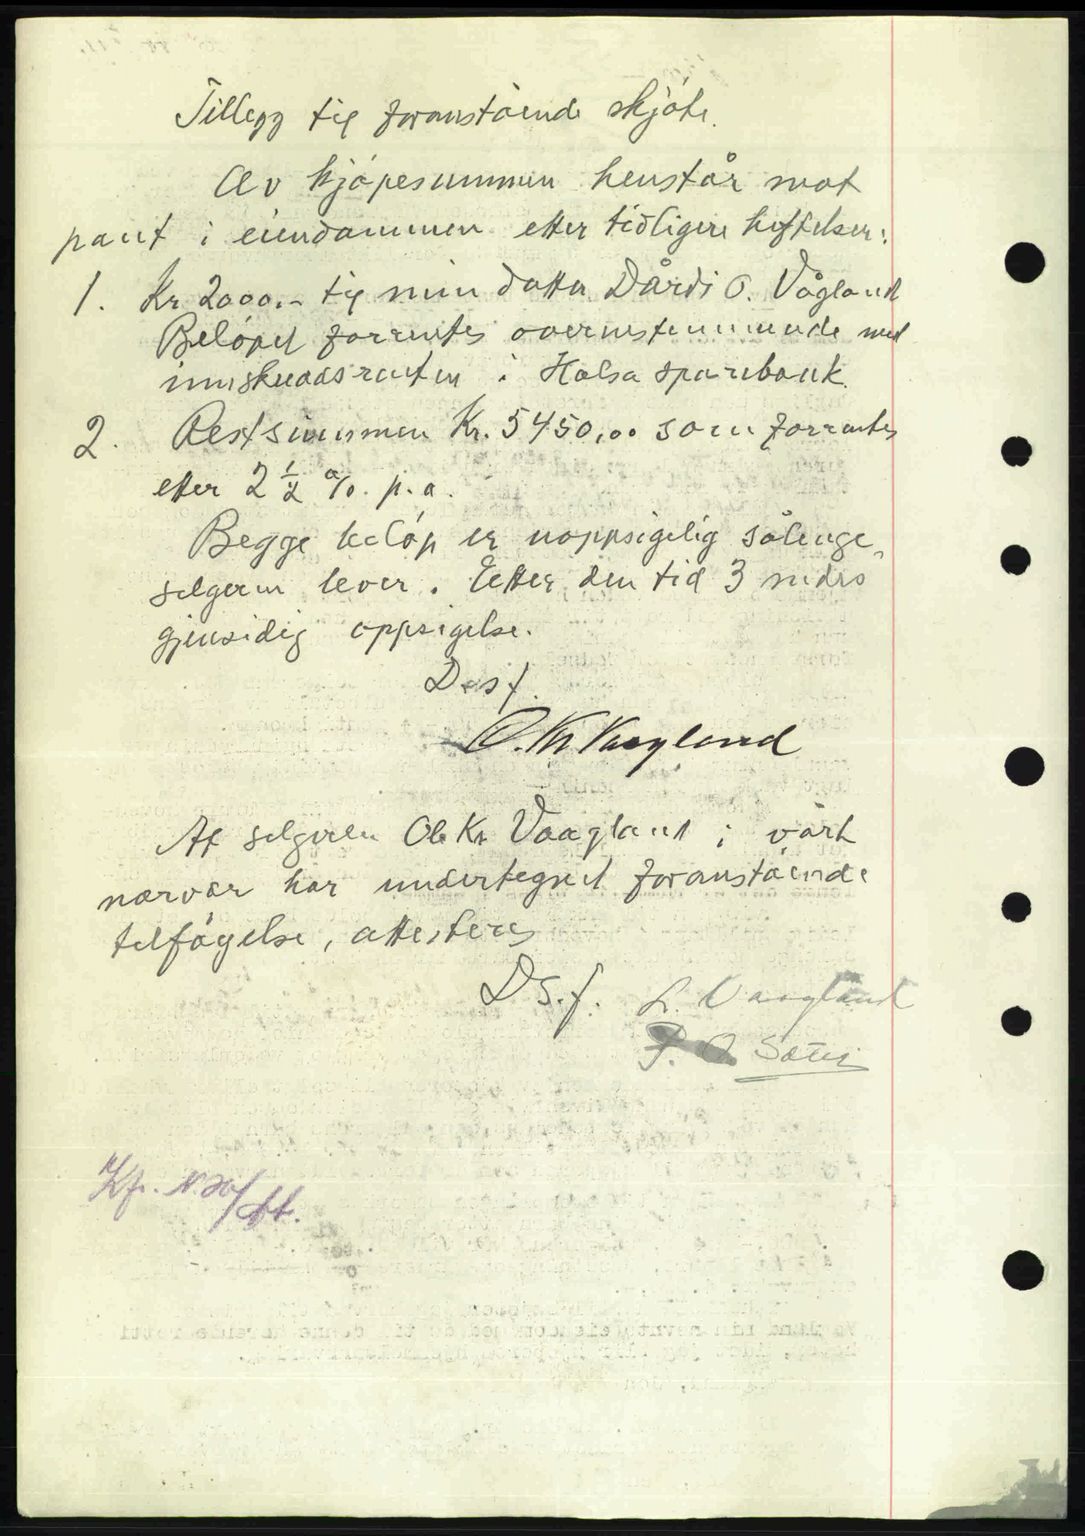 Tillegg til foranstående skjøte.
Av kjøpesummen henstår mot
pant i eiendommen etter tidligere heftelser:
1. Kr. 2000.- til min datter Dårdi O. Vågland
Beløpet forrentes overenstemmende med
innskuddsrenten i Halsa sparebank.
2. Restsummen Kr. 5450,00 som forrentes
etter 2 1/2 %. p.a.
Begge beløp er uoppsigelig sålenge
selgeren lever. Etter den tid 3 mdrs
gjensidig oppsigelse.
D.s.f.
O. Kr Vaagland
At selgeren Ole Kr Vaagland i vårt
nærvær har undertegnet foranstående
tilføgelse, attesteres
D.s.f. L. Vaagland
P. O Sæter
Kfr.